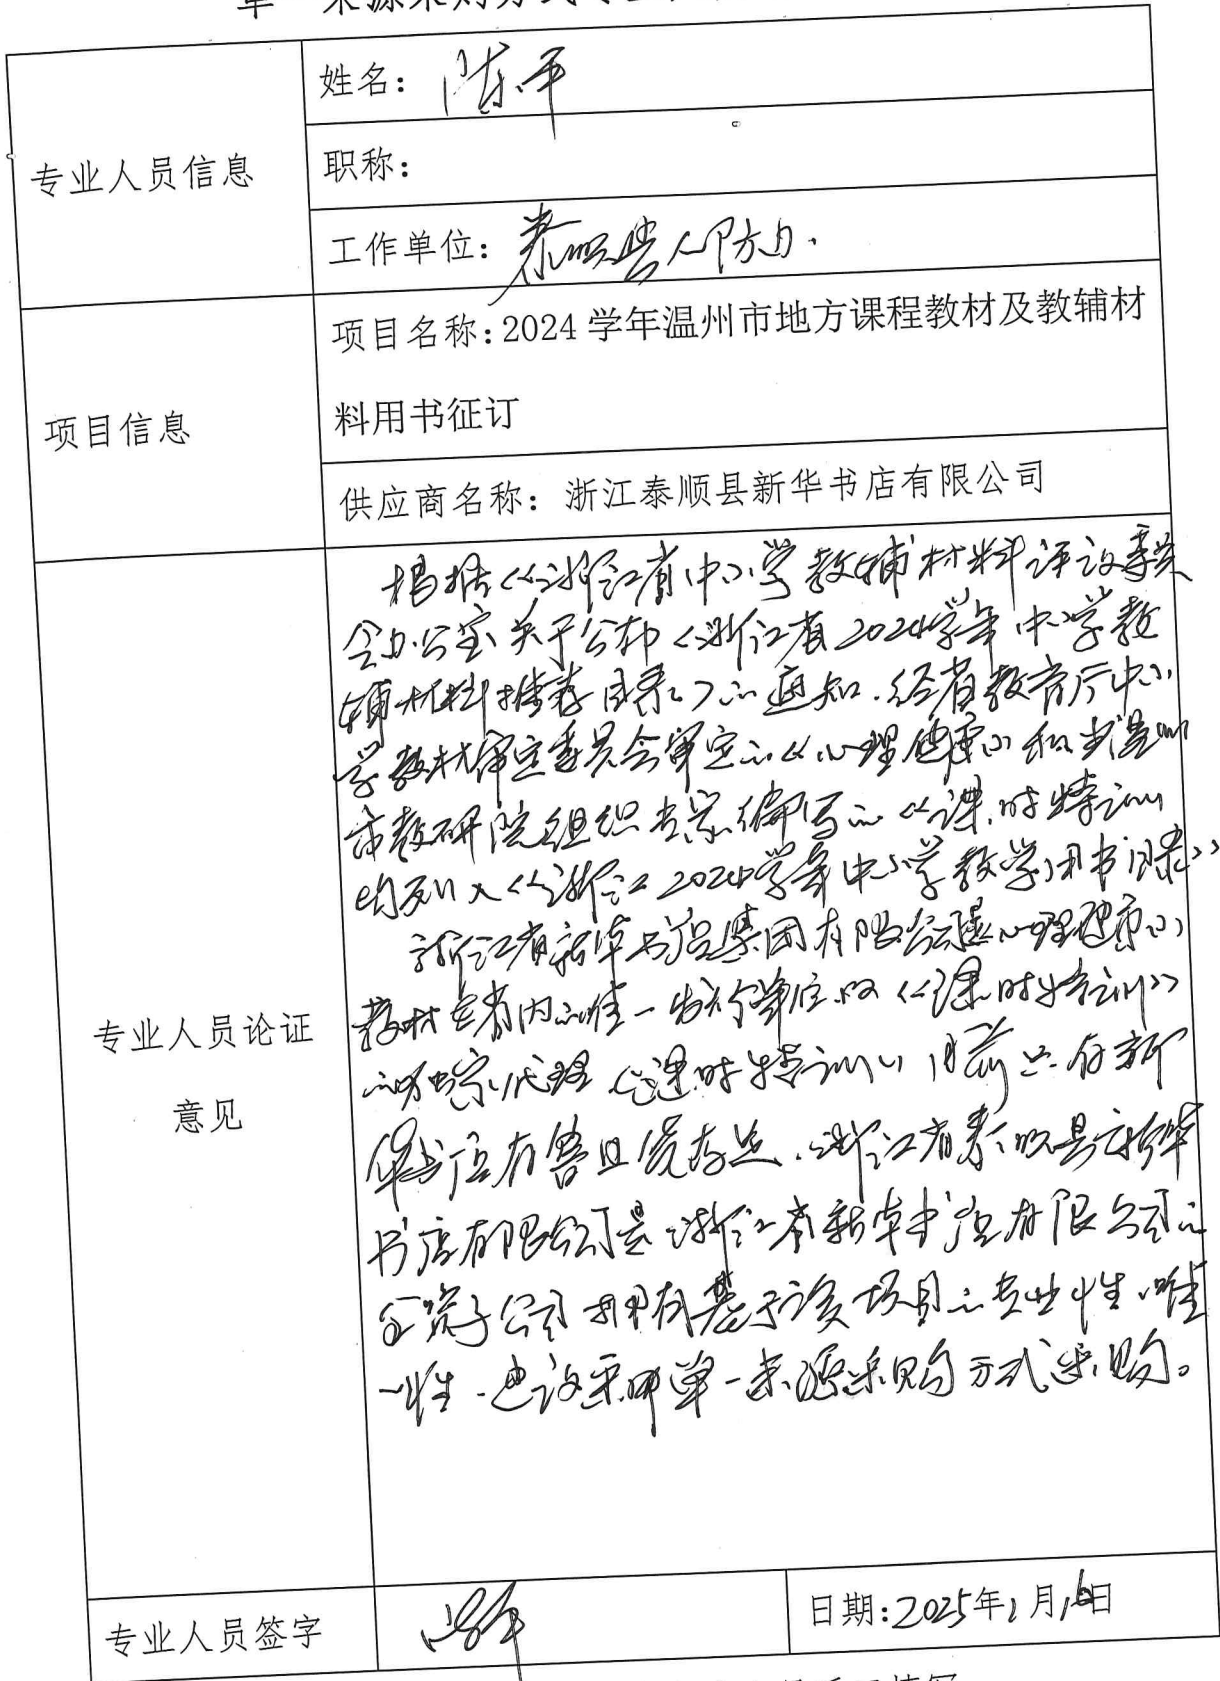 单一来源采购方式专业人
姓名：陈平
专业人员信息
职称：
工作单位：泰顺县人防办.
项目名称：2024 学年温州市地方课程教材及教辅材
料用书征订
项目信息
供应商名称：浙江泰顺县新华书店有限公司
根据《浙江省中小学教辅材料评议委员
会办公室关于公布《浙江省2024学年中小学教
辅材料推荐目录》的通知.经省教育厅中小
学教材审定委员会审定的《心理健康》和由温州
市教研院组织专家编写的《课时特训》
均列入《浙江2024学年中小学教学用书目录》
浙江省新华书店集团有限公司是心理健康》
教材在省内的唯一发行单位以及《课时特训》
的独家代理《课时特训》目前只有新
华书店有售且仅存.浙江省泰顺县新华
书店有限公司是浙江省新华书店有限公司的
全资子公司拥有基于该项目的专业性.唯
一性.建议采用单一来源采购方式采购。
专业人员论证
意见
专业人员签字
陈平
日期：2025年1月16日